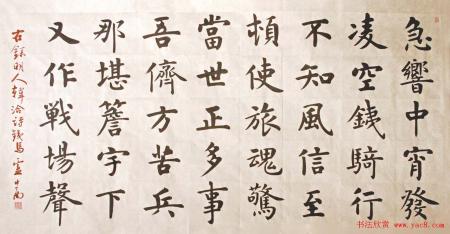 急響中宵發
凌空鐵騎行
不知風信至
頓使旅魂驚
當世正多事
吾儕方苦兵
那堪簷宇下
又作戰場聲
右錄明人韓洽詩鐵馬 盧中南
书法欣赏
www.yac8.com